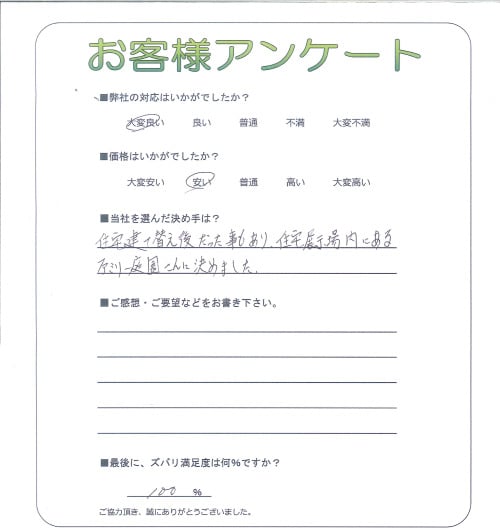 お客様アンケート
■弊社の対応はいかがでしたか？
大変良い 良い 普通 不満 大変不満
■価格はいかがでしたか？
大変安い 安い 普通 高い 大変高い
■当社を選んだ決め手は？
住宅建て替え後だった事もあり、住宅展示場内にある
庭園さんに決めました。
■ご感想・ご要望などをお書き下さい。
■最後に、ズバリ満足度は何%ですか？
100 %
ご協力頂き、誠にありがとうございました。